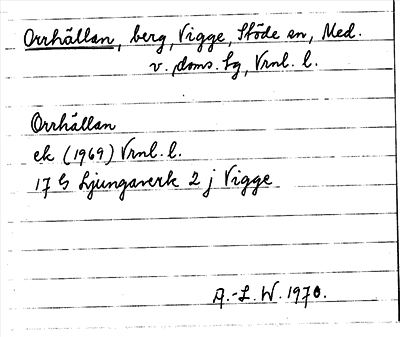 Orrhällan, berg, Vigge, Stöde sn, Med.
v. doms. sg, Vrnl. l.
Orrhällan
ek (1969) Vrnl. l.
17 G Ljungaverk 2 j Vigge
A.-L. W. 1970.